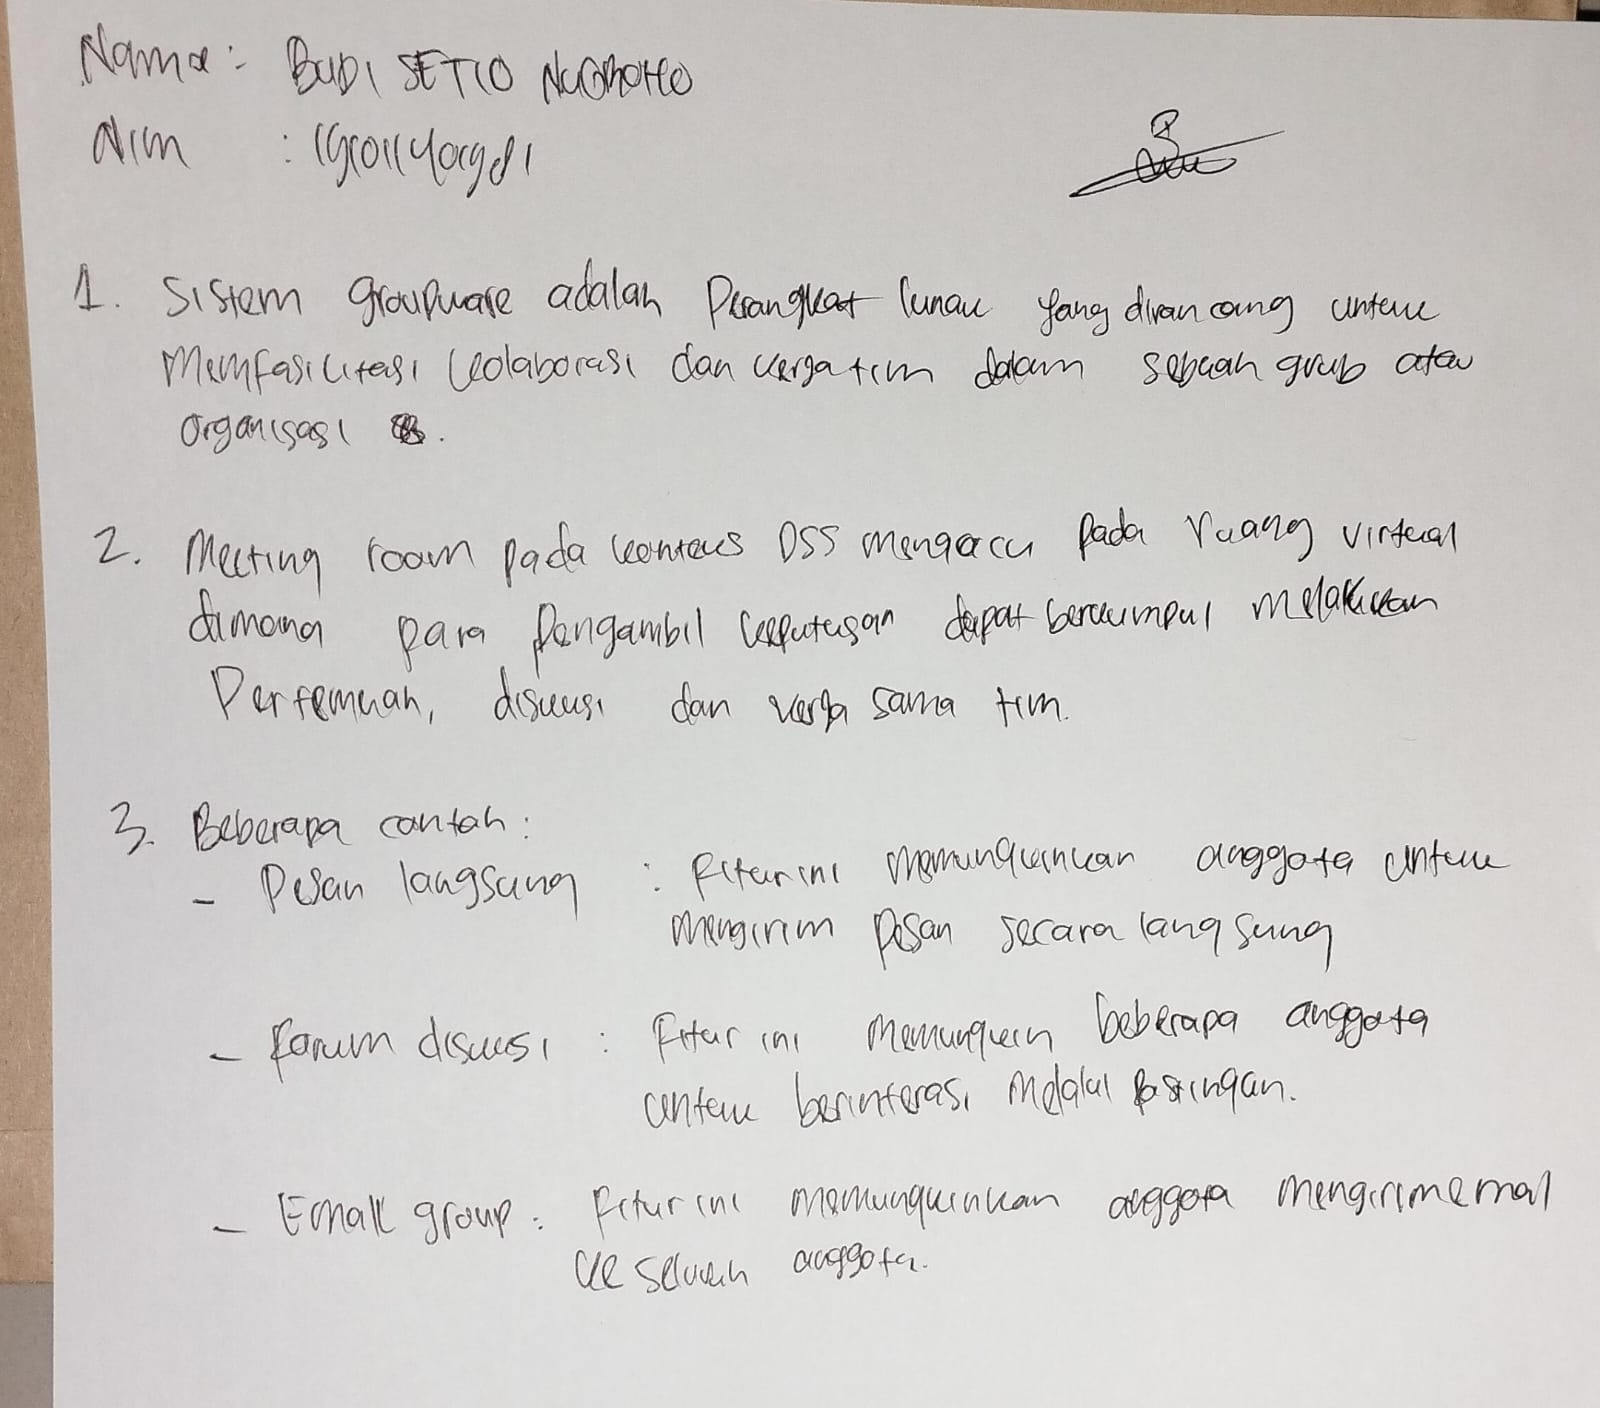 Nama : BUDI SETIO NUGROHO
Nim :
1. Sistem groupware adalah Perangkat lunak yang dirancang untuk
Memfasilitasi kolaborasi dan kerja tim dalam sebuah grub atau
organisasi .
2. Meeting room pada konteks DSS mengacu pada ruang virtual
dimana para Pengambil keputusan dapat berkumpul melakukan
Pertemuan, diskusi dan kerja sama tim.
3. Beberapa contoh :
- Pesan langsung : Fitur ini memungkinkan anggota untuk
mengirim pesan secara langsung
- Forum diskusi : Fitur ini memungkin beberapa anggota
untuk berinterasi melalui postingan.
- Email group : Fitur ini memungkinkan anggota mengirim email
ke seluruh anggota.